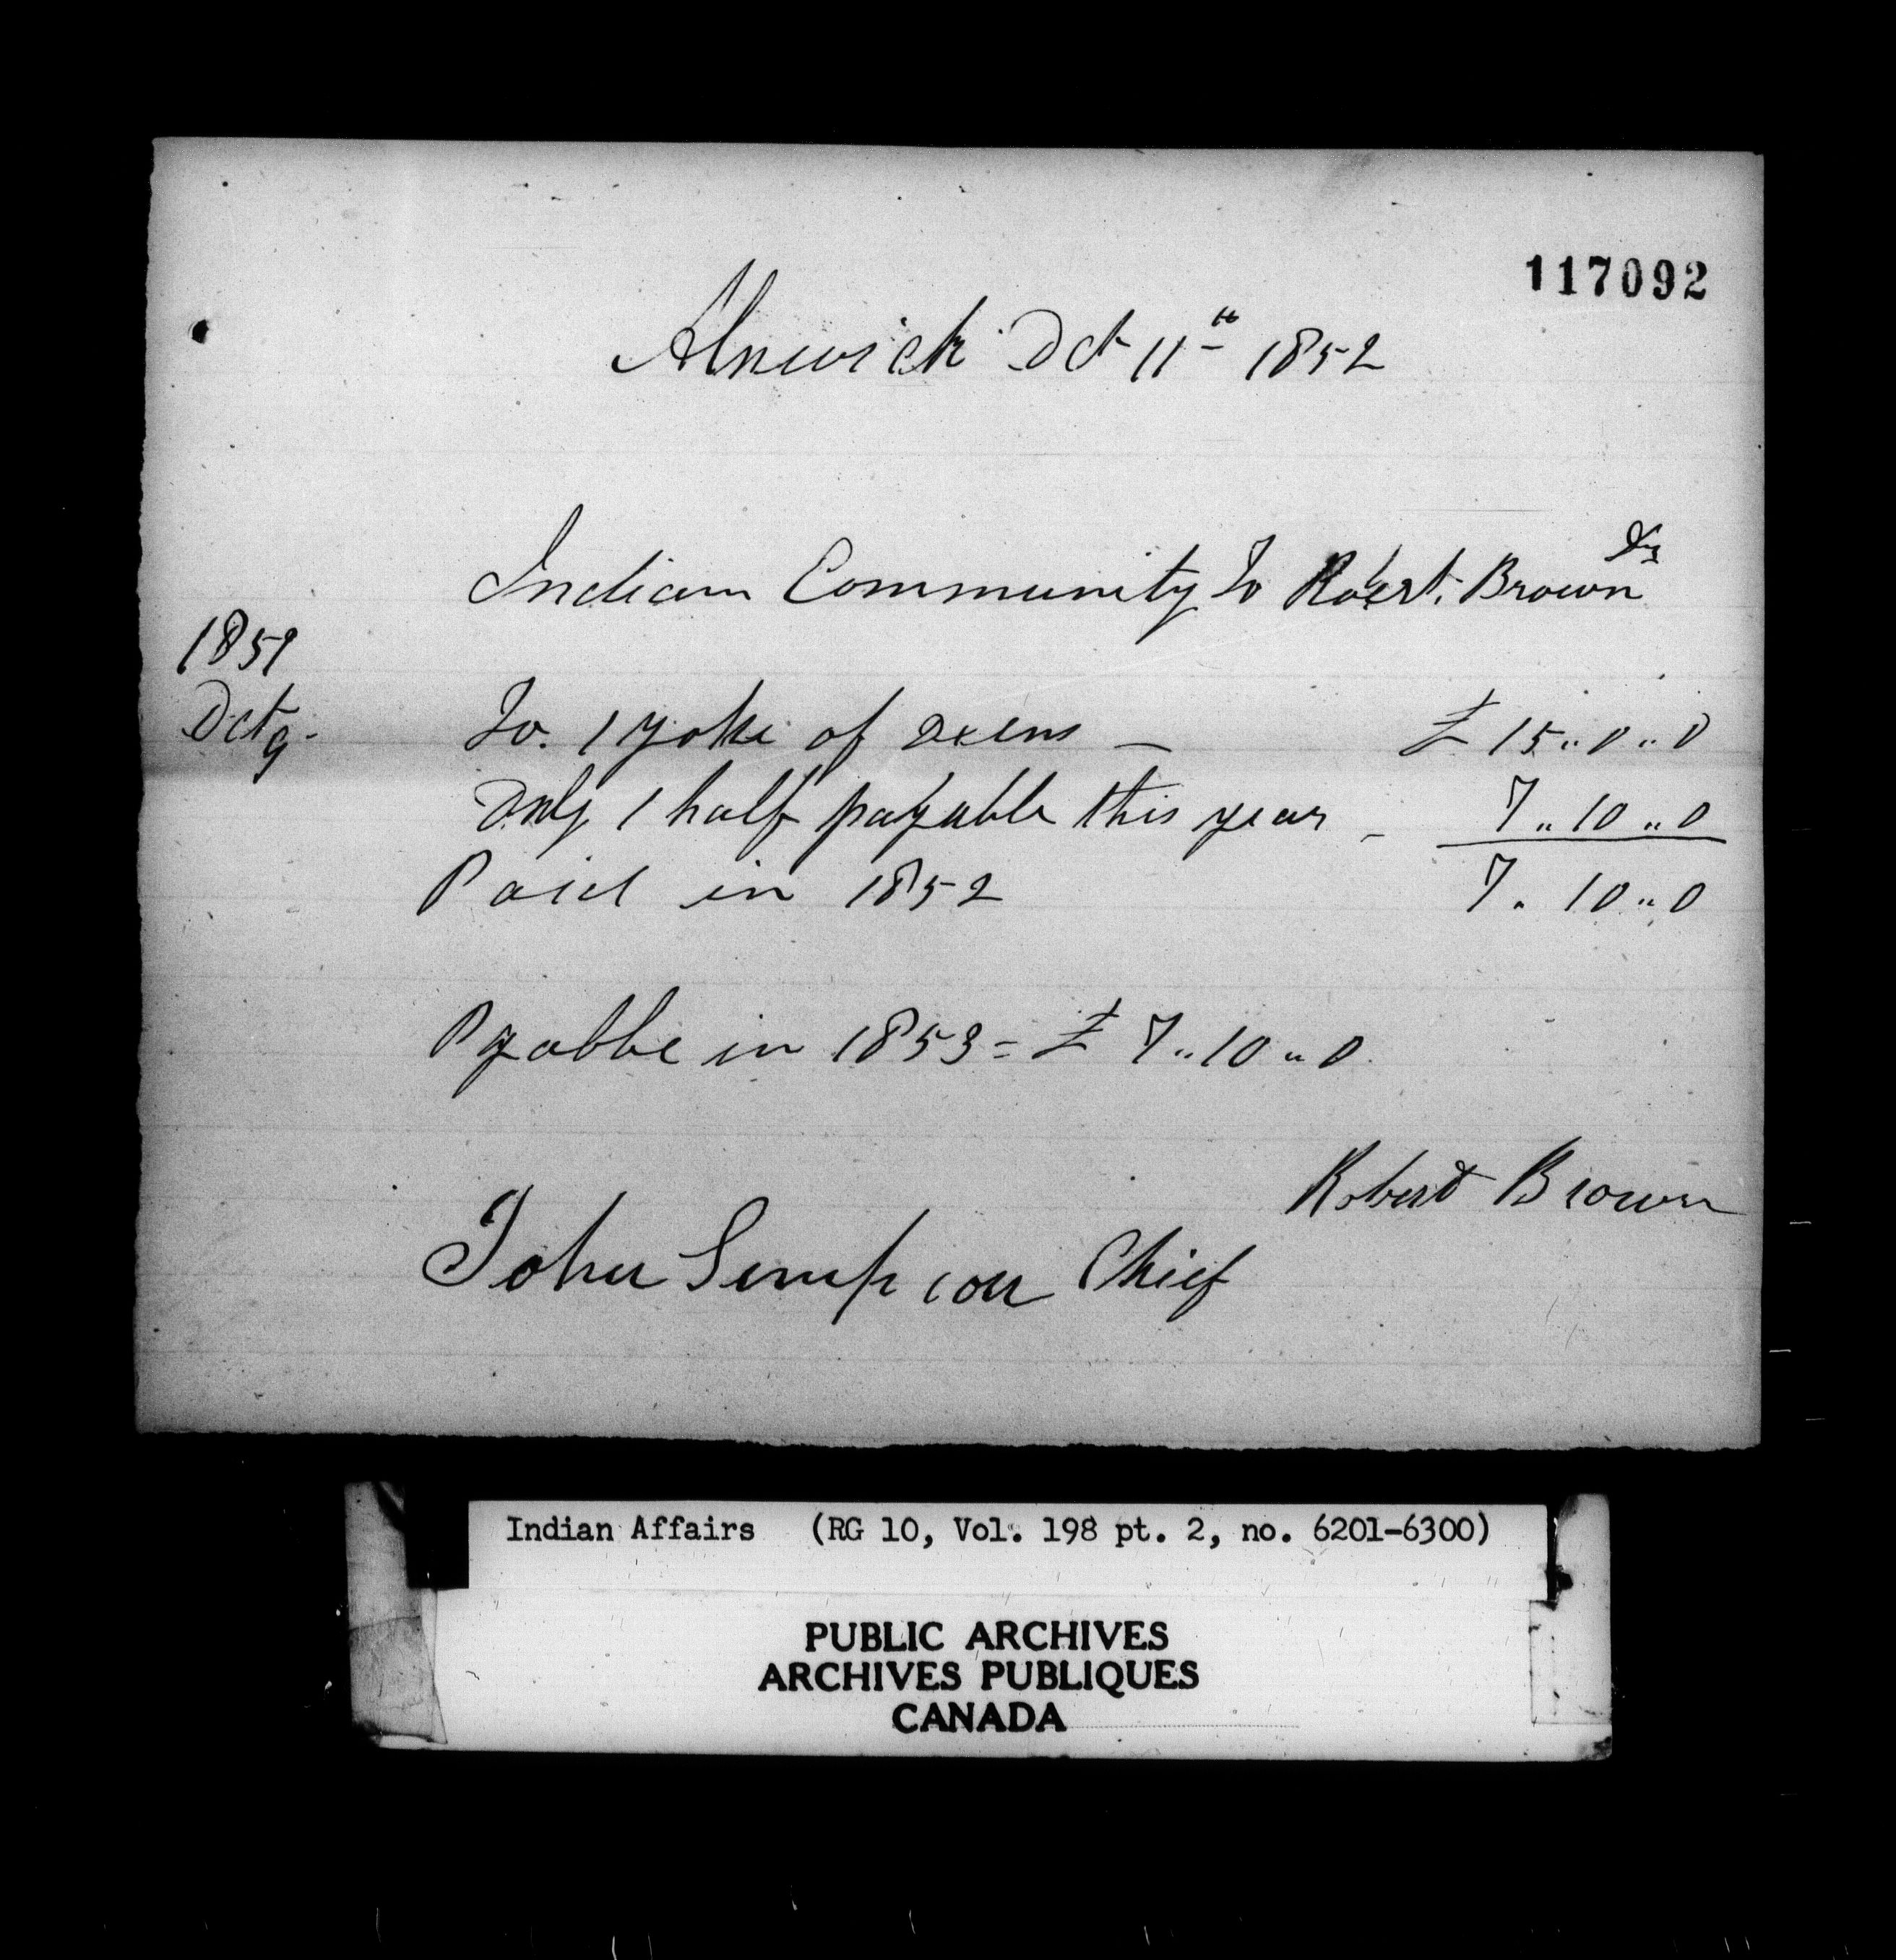 117092
Alnwick Oct 11th 1852
Indian Community To Robert. Brown Dr
1852
Oct 9-
To. 1 yoke of oxens — £ 15..0..0
Only 1 half payable this year - 7..10..0
Paid in 1852 7. 10..0
Pyabbe in 1853 = £ 7..10..0
Robert Brown
John Simpson Chief
Indian Affairs (RG 10, Vol. 198 pt. 2, no. 6201-6300)
PUBLIC ARCHIVES
ARCHIVES PUBLIQUES
CANADA